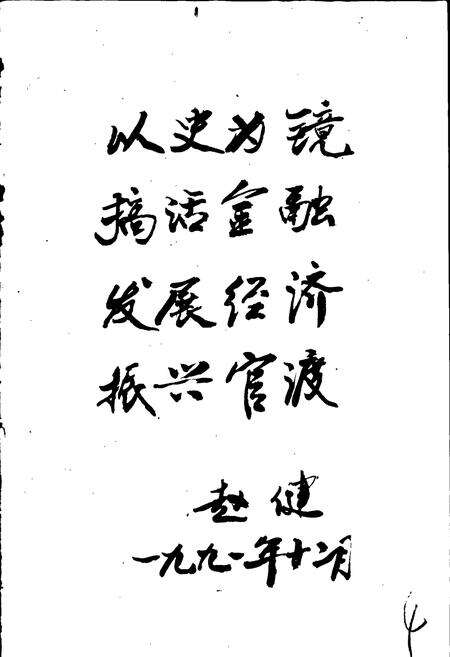 以史为镜
搞活金融
发展经济
振兴官渡
赵健
一九九一年十二月
4